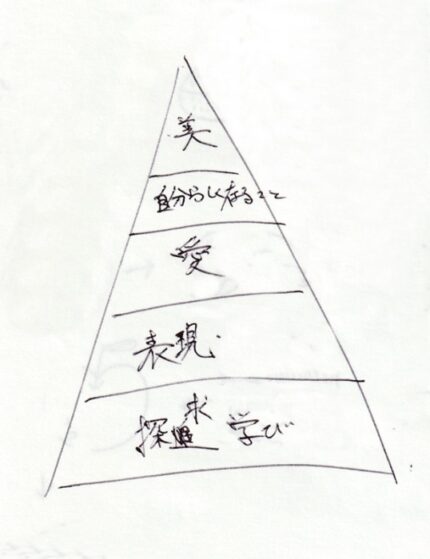 美
自分らしく在ること
愛
表現
探求 学び